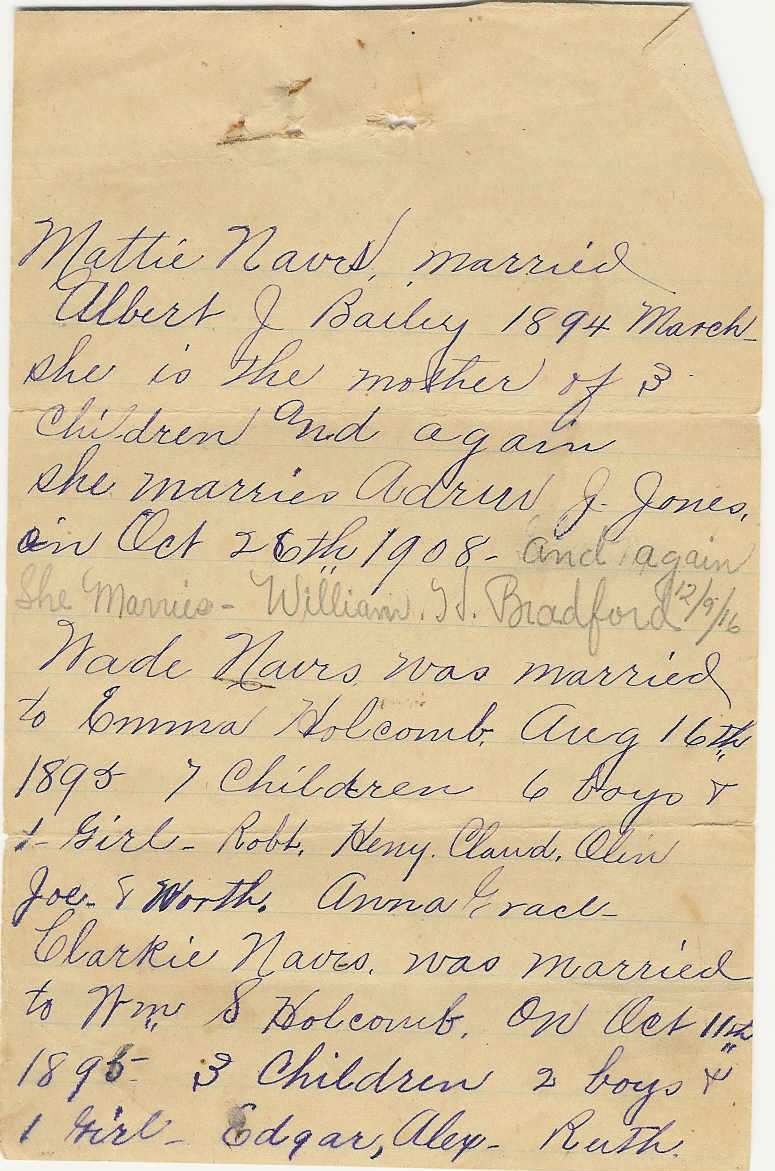 Mattie Navis, married
Albert J Bailey 1894 March
she is the mother of 3
Children and again
she marries J. Jones,
in Oct 26th 1908 - and again
She Marries - William. H. Bradford 12/9/16
Wade Navis was married
to Emma Holcomb. Aug 16th
1895 7 Children 6 boys &
1 - Girl - Robt. Heny. Claud. Olin
Joe - & Worth. Anna Grace -
Clarkie Navis. was married
to Wm S Holcomb. On Oct 11th
1895 - 3 Children 2 boys &
1 Girl - Edgar, Alex - Ruth.